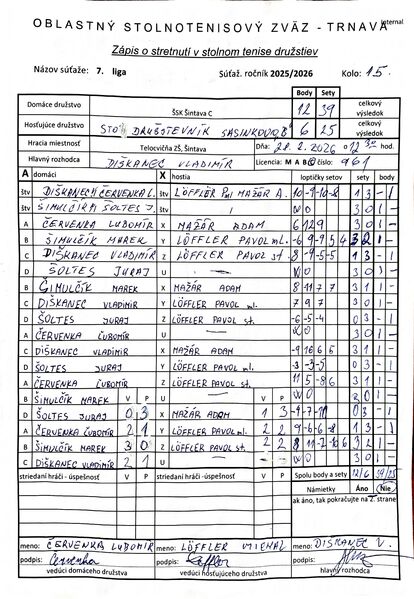 Internal
OBLASTNÝ STOLNOTENISOVÝ ZVÄZ - TRNAVA
Zápis o stretnutí v stolnom tenise družstiev
Názov súťaže: 7. liga Súťaž. ročník 2025/2026 Kolo: 15.
Body Sety
Domáce družstvo ŠSK Šintava C 12 39 celkový výsledok
Hosťujúce družstvo STO DRUŠTEVNÍK SASINKOVO B 6 25 celkový výsledok
Hracia miestnosť Telocvičňa ZŠ, Šintava Dňa: 2026 o 12 30 hod
Hlavný rozhodca DIŠKANEC VLADIMÍR Licencia: M A B C číslo: 961
A domáci X hostia loptičky setov sety body
štv DIŠKANEC ČERVENKA Ľ. LÖFFLER MAŽÁR A. 10 -9 -10 -8 1 3 - 1
štv ŠIMULČÍK ŠOLTES J. 3 0 1 -
A ČERVENKA ĽUBOMÍR X MAŽÁR ADAM
B ŠIMULČÍK MAREK Y LÖFFLER PAVOL ml. 3 2 1 -
C DIŠKANEC VLADIMÍR Z LÖFFLER PAVOL st 1 3 - 1
D ŠOLTES JURAJ U 3 0 1 -
B ŠIMULČÍK MAREK X MAŽÁR ADAM 8 11 7 7 3 1 1 -
C DIŠKANEC VLADIMÍR Y LÖFFLER PAVOL ml. 7 9 7 3 0 1 -
D ŠOLTES JURAJ Z LÖFFLER PAVOL st. -6 -5 -4 0 3 - 1
A ČERVENKA ĽUBOMÍR U 3 0 1 -
C DIŠKANEC VLADIMÍR X MAŽÁR ADAM -9 16 6 5 3 1 1 -
D ŠOLTES JURAJ Y LÖFFLER PAVOL ml. -3 -3 -5 0 3 - 1
A ČERVENKA ĽUBOMÍR Z LÖFFLER PAVOL st. 11 5 -8 6 3 1 1 -
B ŠIMULČÍK MAREK V P U V P
D ŠOLTES JURAJ 0 3 X MAŽÁR ADAM 1 3 -9 -7 0 3 - 1
A ČERVENKA ĽUBOMÍR 2 1 Y LÖFFLER PAVOL ml. 2 2 -9 -6 6 -8 1 3 - 1
B ŠIMULČÍK MAREK 3 0 Z LÖFFLER PAVOL st. 2 2 3 2 1 -
C DIŠKANEC VLADIMÍR 2 1 U 3 0 1 -
striedaní hráči - úspešnosť V P striedaní hráči - úspešnosť V P Spolu body a sety 12/6 39/25
Námietky Áno Nie
ak áno, tak pokračujte na 2. strane
meno: ČERVENKA ĽUBOMÍR meno: LÖFFLER MICHAL meno: DIŠKANEC V.
podpis: Červenka podpis: Löffler podpis:
vedúci domáceho družstva vedúci hosťujúceho družstva hlavný rozhodca